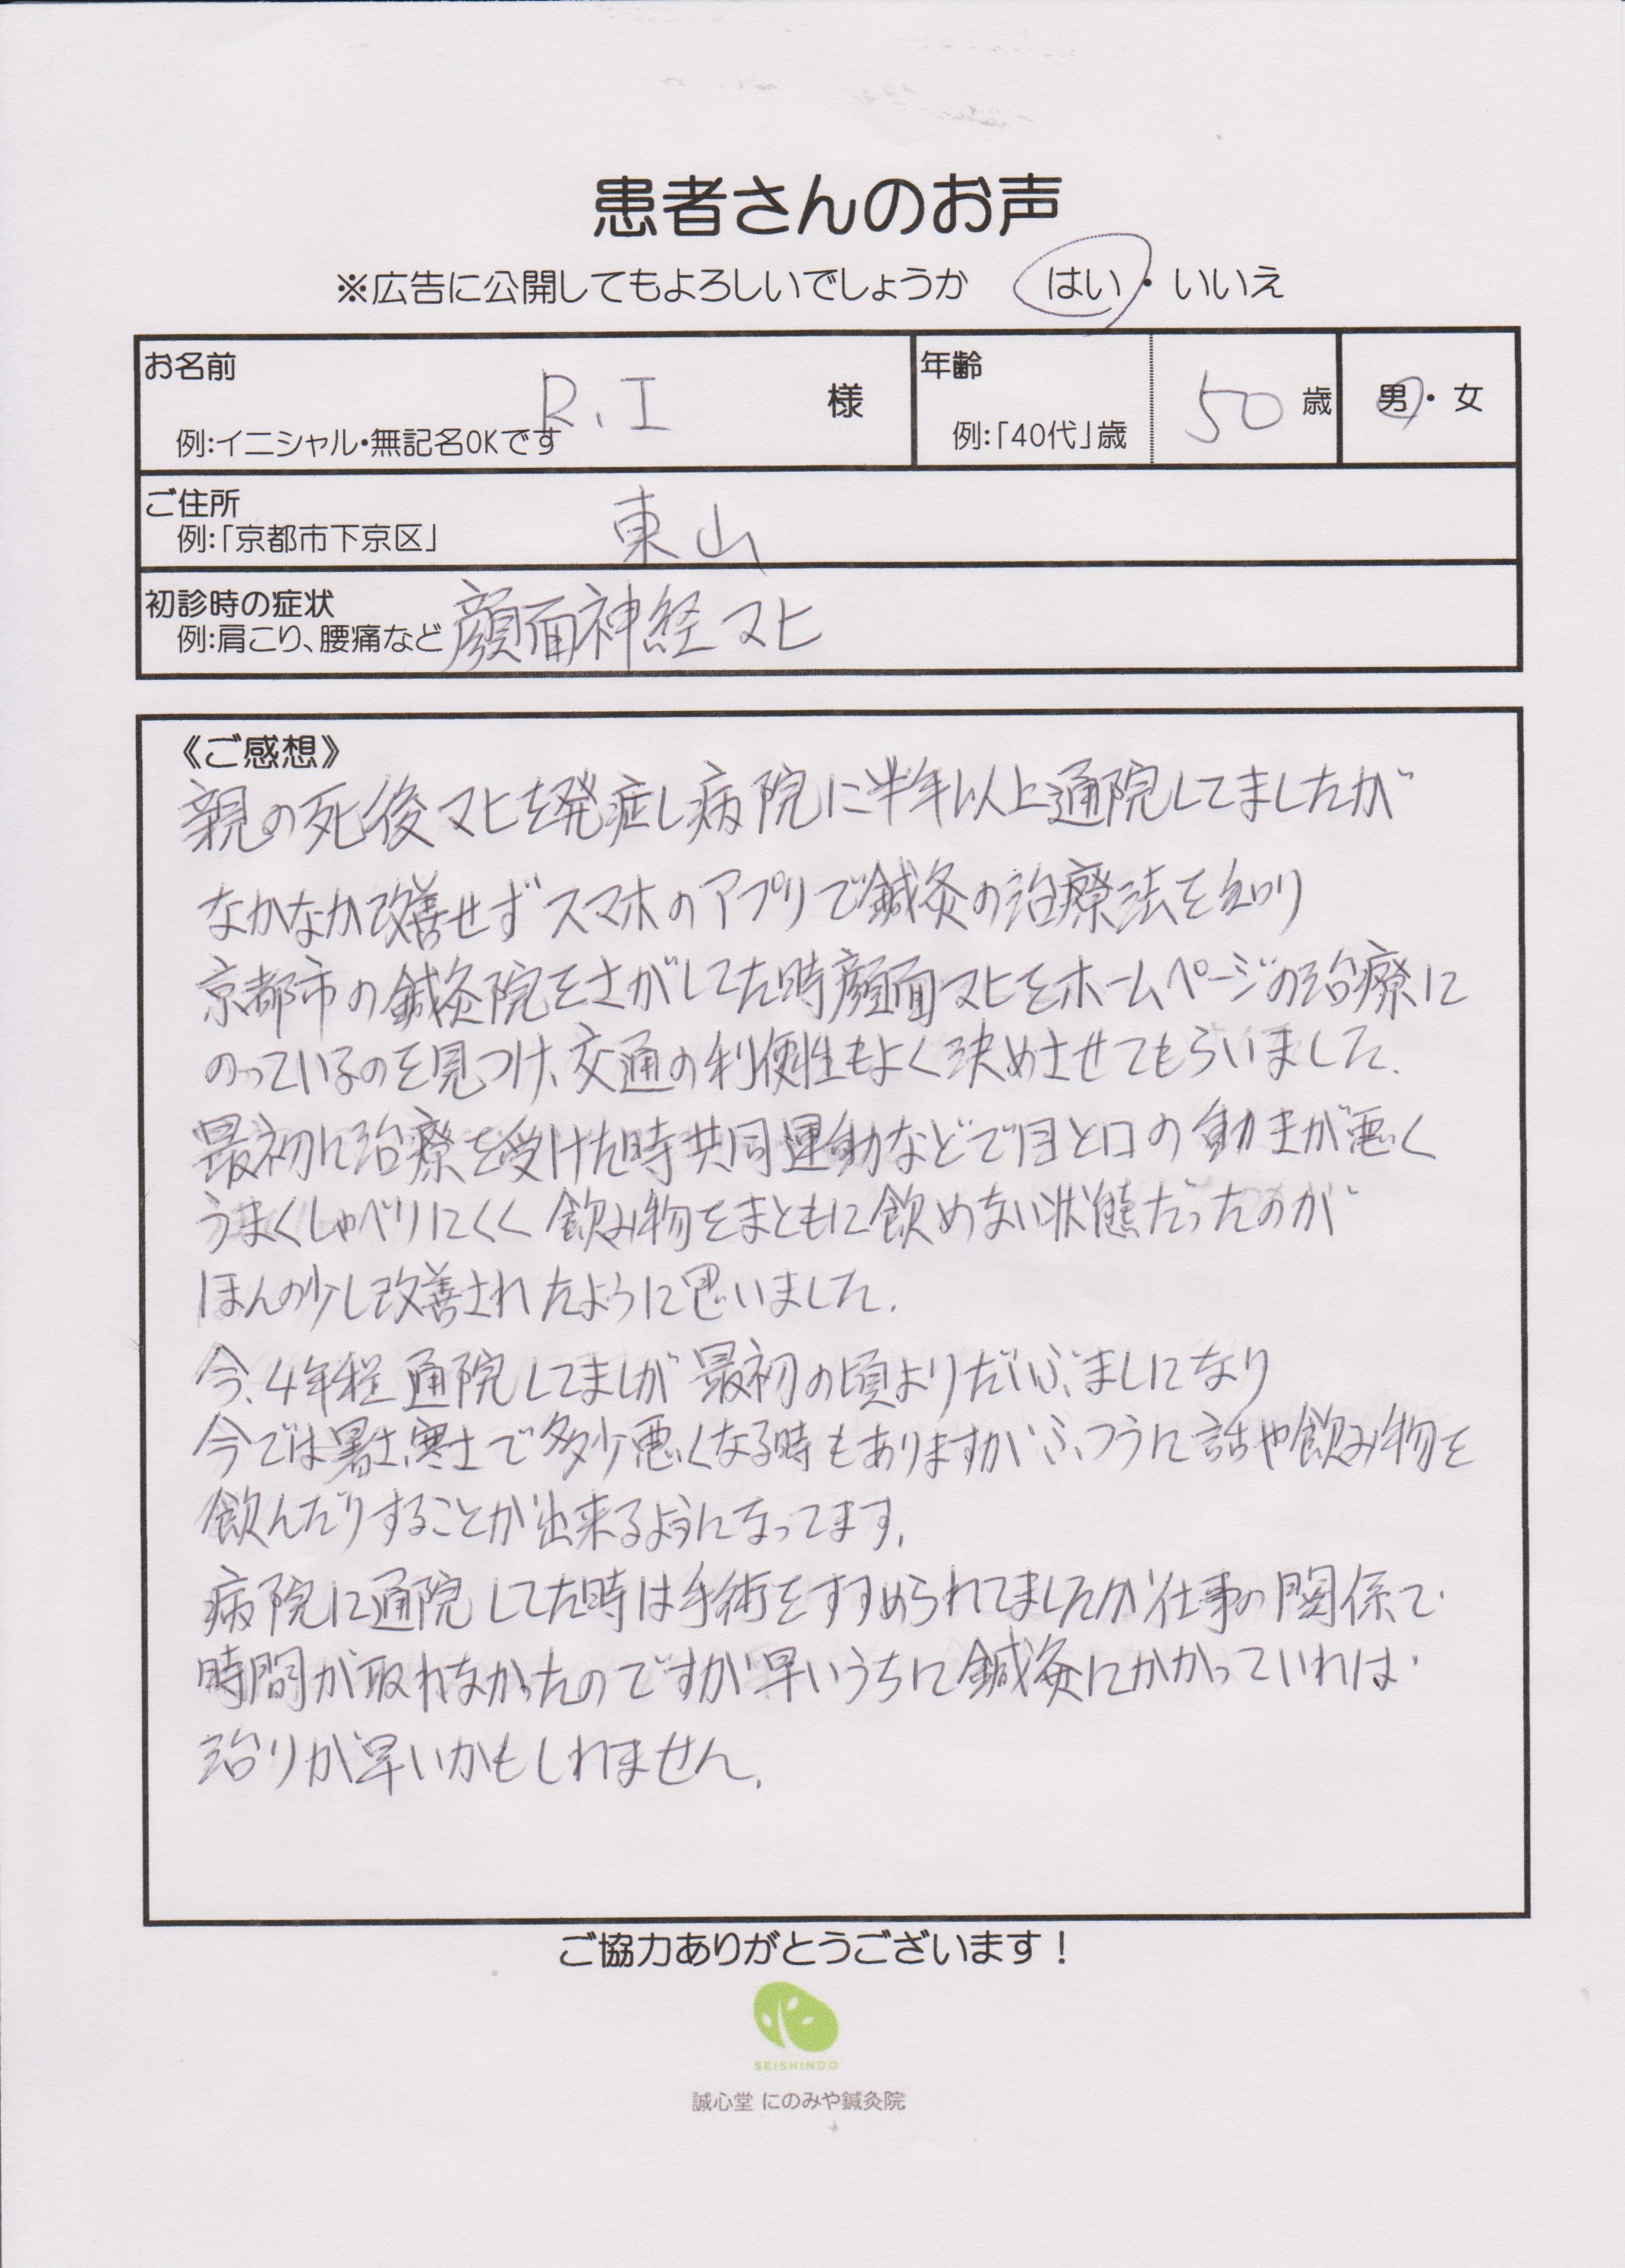 患者さんのお声
※広告に公開してもよろしいでしょうか はい・いいえ
お名前 R.I 様
例:イニシャル・無記名OKです
年齢 50 歳
例:「40代」歳
男・女
ご住所 東山
例:「京都市下京区」
初診時の症状 顔面神経マヒ
例:肩こり、腰痛など
《ご感想》
親の死後マヒを発症し病院に半年以上通院してましたが
なかなか改善せずスマホのアプリで鍼灸の治療法を知り
京都市の鍼灸院をさがしてた時顔面マヒをホームページの治療に
のっているのを見つけ、交通の利便性もよく決めさせてもらいました.
最初に治療を受けた時共同運動などで目と口の動きが悪く
うまくしゃべりにくく飲み物をまともに飲めない状態だったのが
ほんの少し改善されたように思いました.
今、4年程通院してましが最初の頃よりだいぶましになり
今では暑さ、寒さで多少悪くなる時もありますがふつうに話や飲み物を
飲んだりすることが出来るようになってます.
病院に通院してた時は手術をすすめられてましたが仕事の関係で
時間が取れなかったのですが早いうちに鍼灸にかかっていれば
治りが早いかもしれません.
ご協力ありがとうございます!
SEISHINDO
誠心堂 にのみや鍼灸院